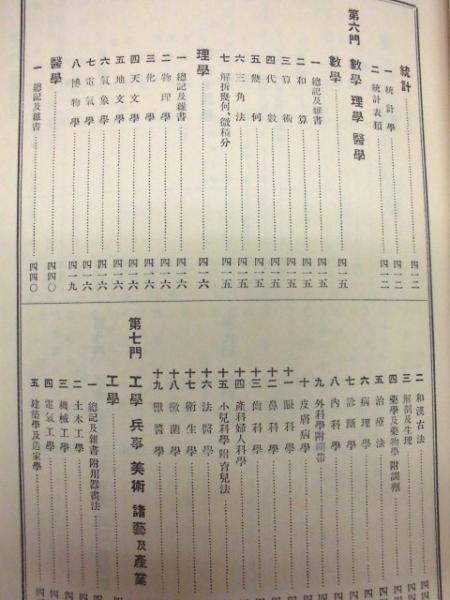 統計
一 統計學 四一二
二 統計表類 四一二
第六門 數學 理學 醫學
數學 四一五
一 總記及雜書 四一五
二 和算 四一五
三 算術 四一五
四 代數 四一五
五 幾何 四一五
六 三角法 四一五
七 解析幾何、微積分 四一五
理學 四一六
一 總記及雜書 四一六
二 物理學 四一六
三 化學 四一六
四 天文學 四一六
五 地文學 四一六
六 氣象學 四一六
七 電氣學 四一六
八 博物學 四一九
醫學 四四〇
一 總記及雜書 四四〇
二 和漢古法
三 解剖及生理
四 藥學及藥物學 附調劑
五 治療法
六 病理學
七 診斷學
八 內科學
九 外科學附繃帶
十 皮膚病學
十一 眼科學
十二 鼻科學
十三 齒科學
十四 產科學婦人科學
十五 小兒科學 附育兒法
十六 法醫學
十七 衞生學
十八 黴菌學
十九 獸醫學
第七門 工學 兵事 美術 諸藝及產業
工學
一 總記及雜書 附用器畫法
二 土木工學
三 機械工學
四 電氣工學
五 建築學及造家學